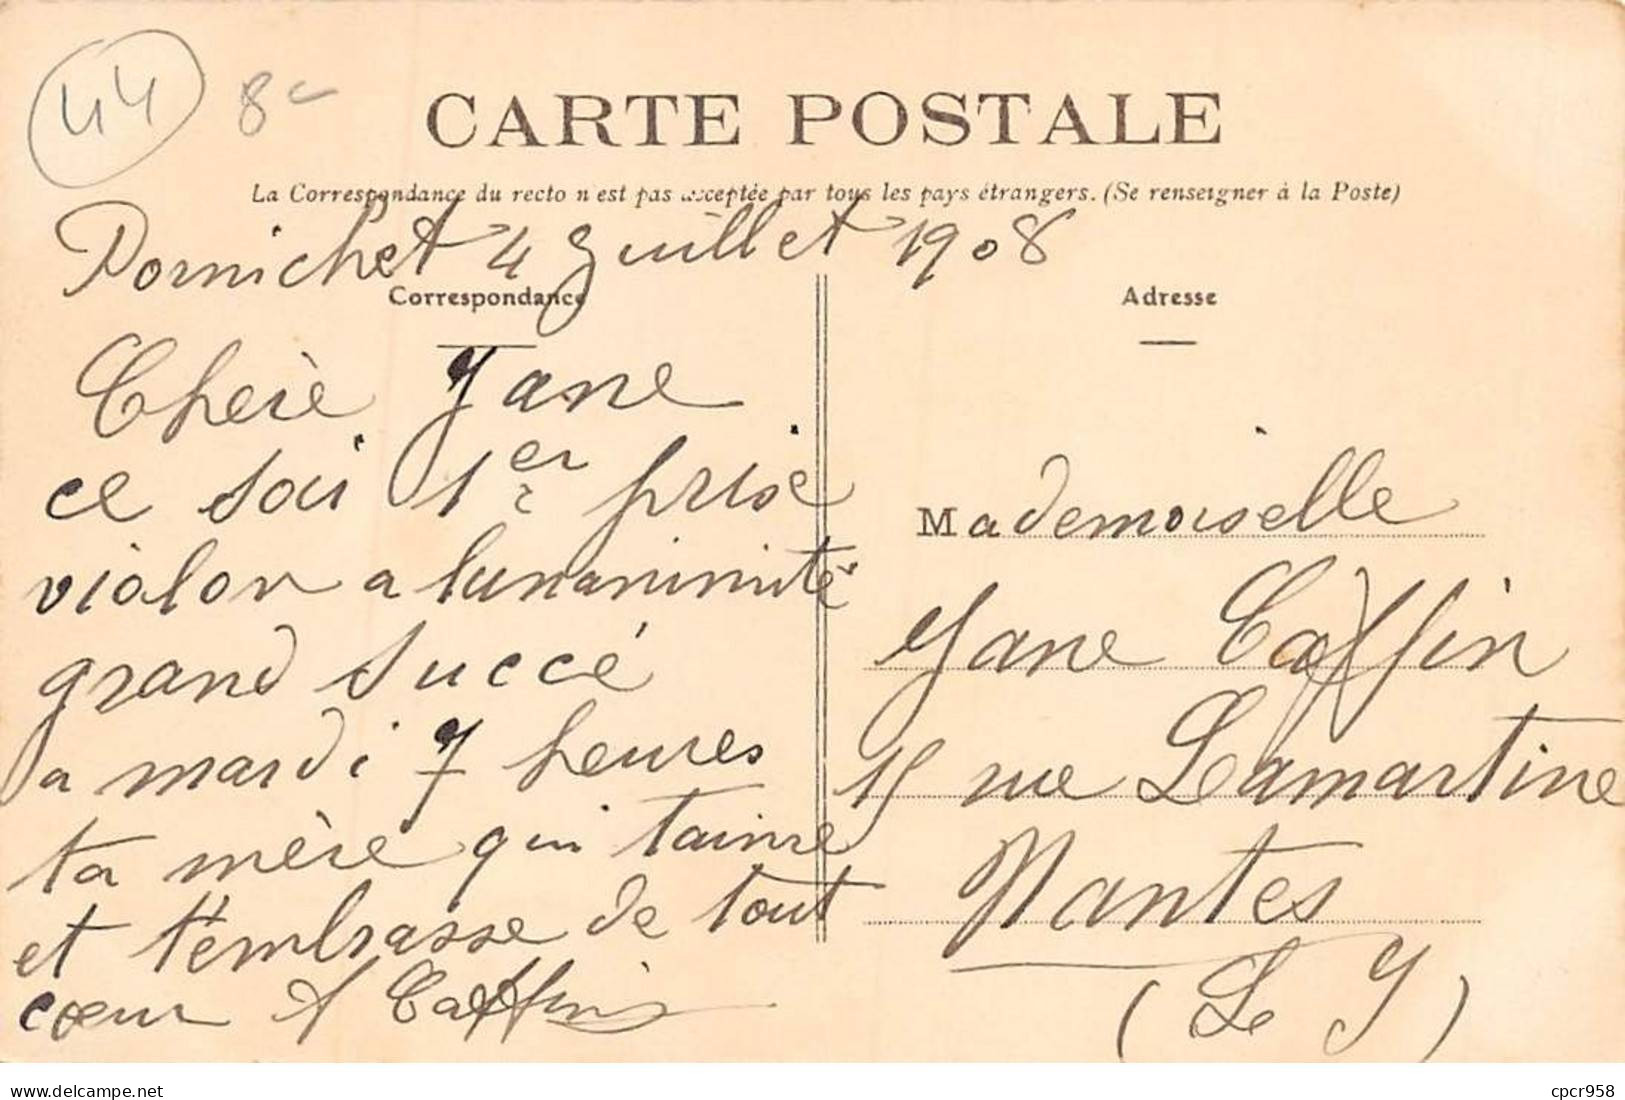 44 8
CARTE POSTALE
La Correspondance du recto n'est pas acceptée par tous les pays étrangers. (Se renseigner à la Poste)
Pornichet 4 Juillet 1908
Correspondance
Chère Jane
ce soir 1er prix
violon a lunanimité
grand succé
a mardi 7 heures
ta mère qui taime
et t'embrasse de tout
cœur A Caffin
Adresse
Mademoiselle
Jane Caffin
15 rue Lamartine
Nantes
(Le J)
www.delcampe.net
cpcr958